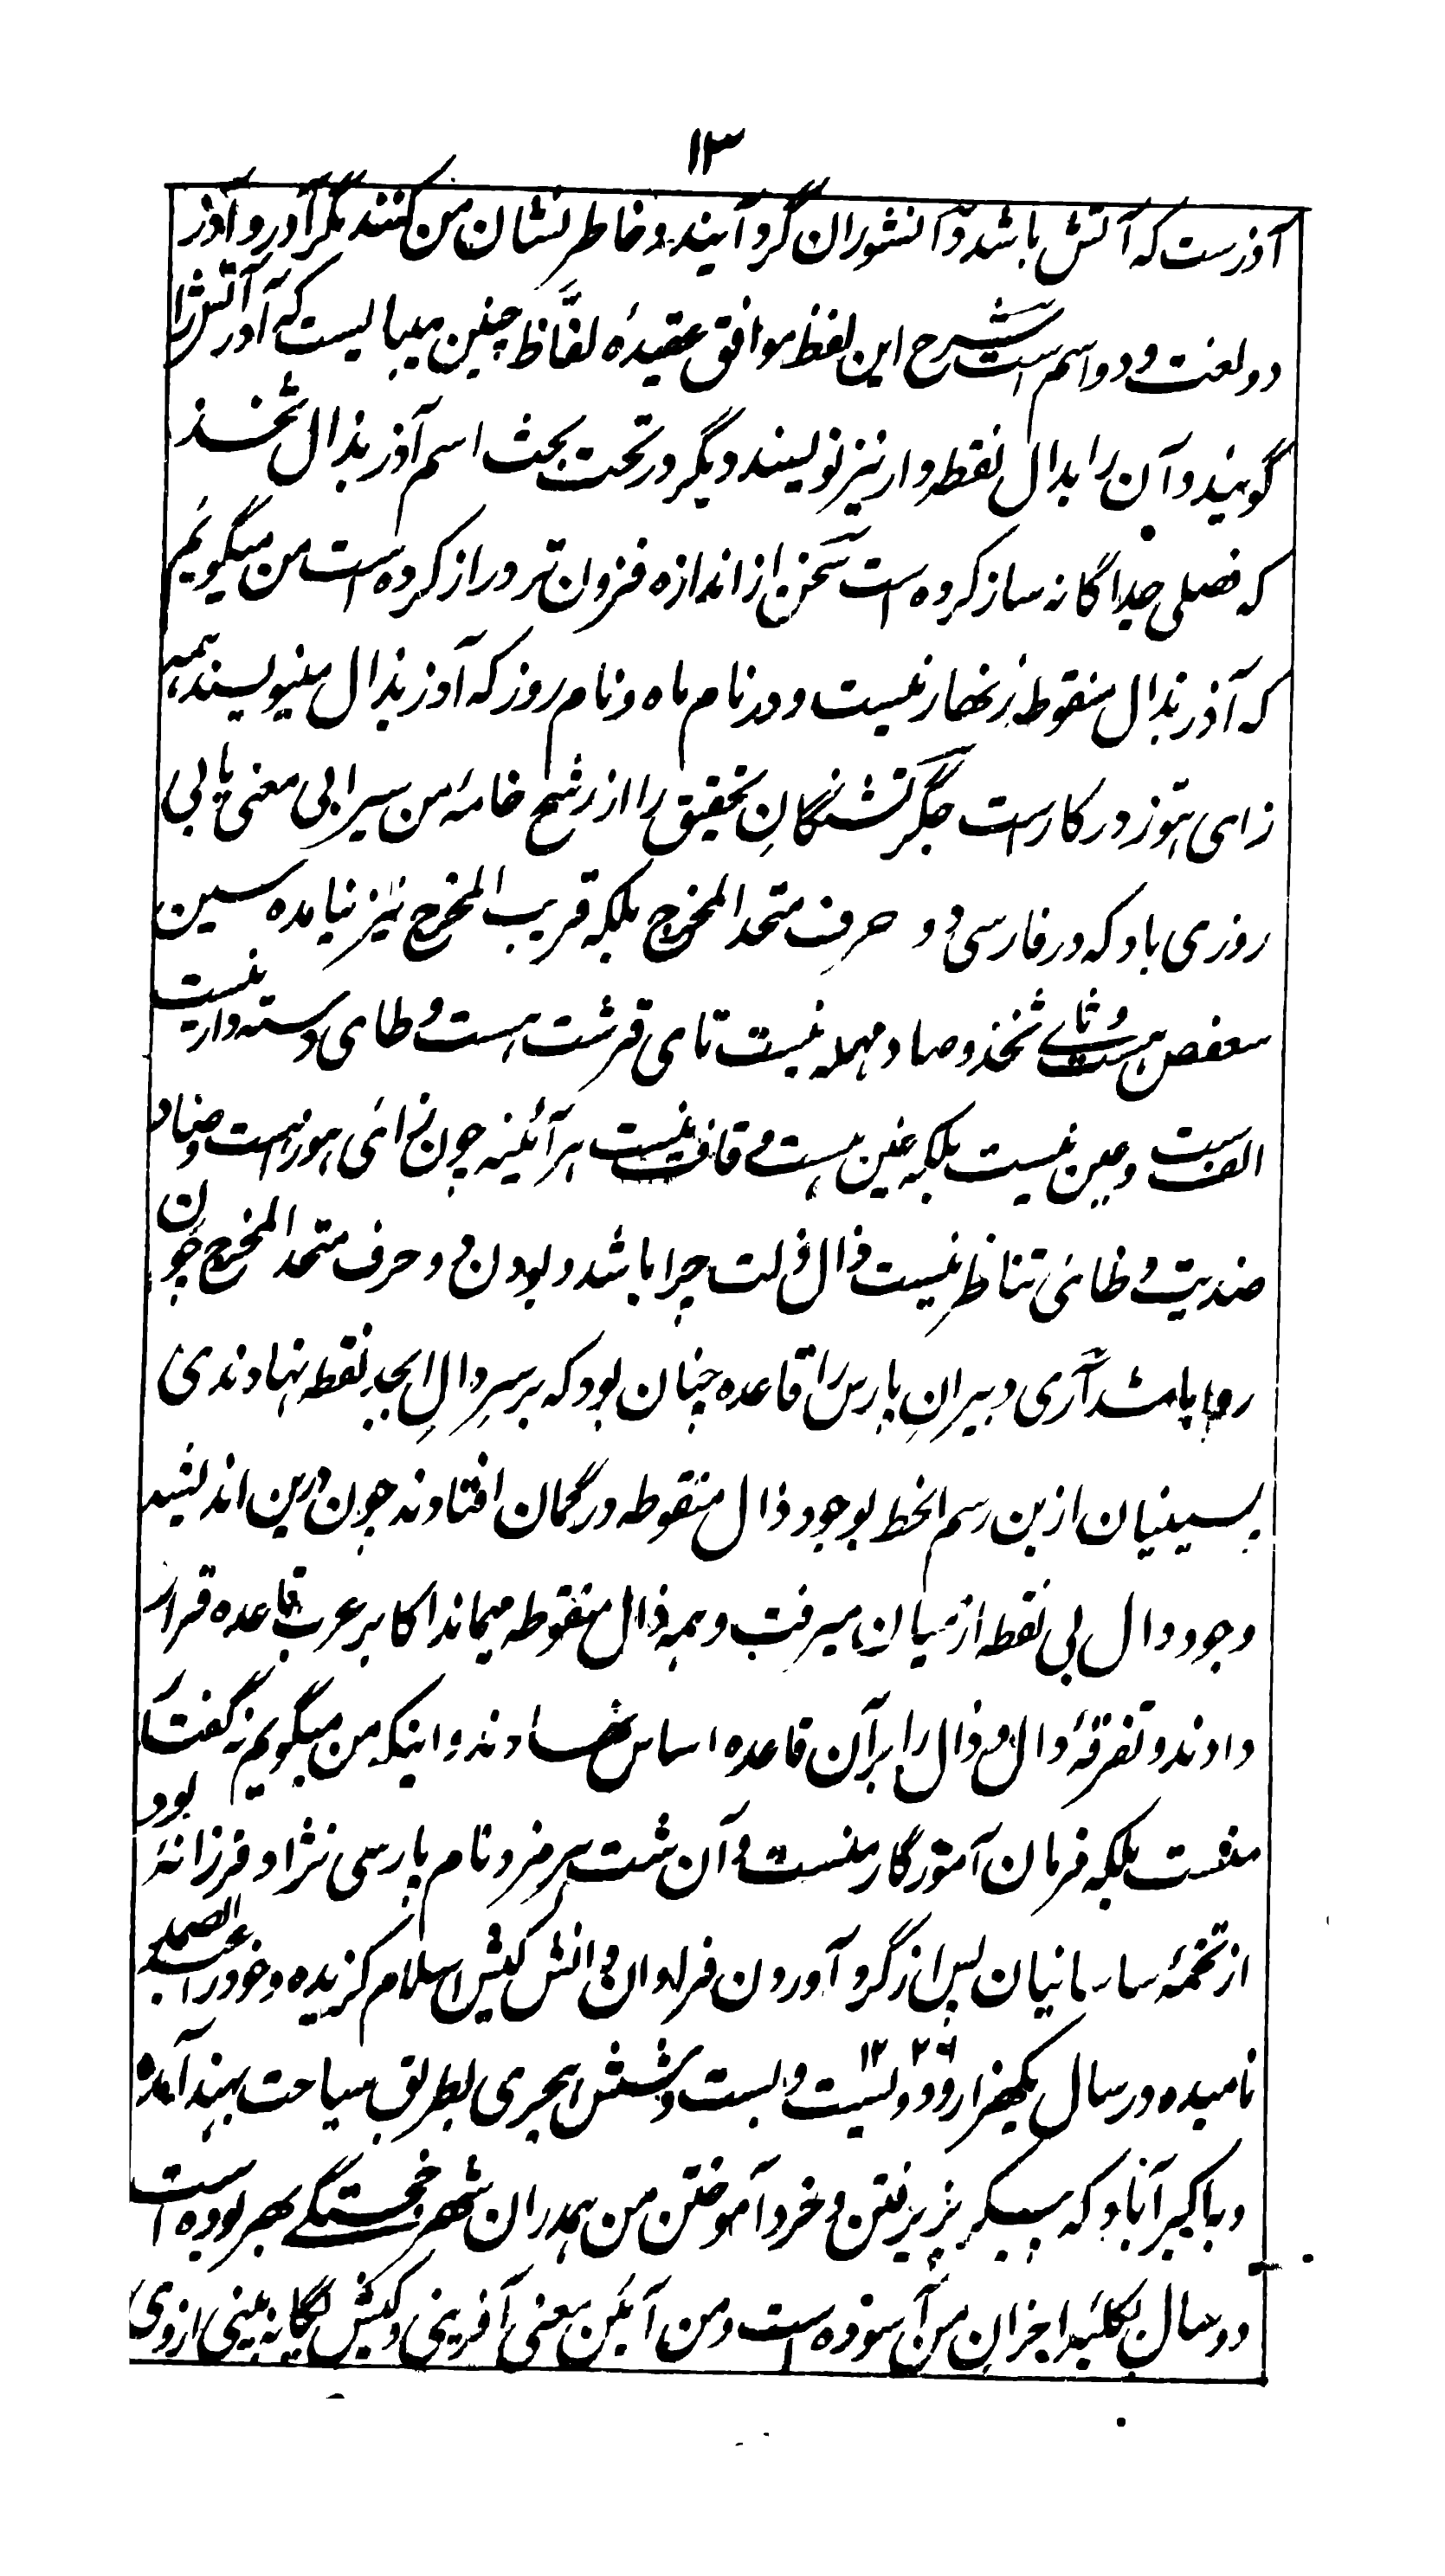 ۱۳
آذرست که آتش باشد دانشوران گرد آیند و خاطر نشان من کنند مگر آدر و آذر
دو لغت و دو اسم است شرح این لفظ موافق عقیدهٔ لفّاظ چنین میبایست که آدر آتش را
گویند و آن را بدال نقطه دار نیز نویسند دیگر در تحت بحث اسم آذر بذال ثخذ
که فصلی جداگانه ساز کرده است سخن از اندازه فزون تر دراز کرده است من میگویم
که آذر بذال منقوطه زنهار نیست و در نام ماه و نام روز که آذر بذال مینویسند همه
زای هوز در کارست جگر تشنگانِ تحقیق را از رشح خامهٔ من سیرابی معنی یابی
روزی باد که در فارسی دو حرف متحد المخرج بلکه قریب المخرج نیز نیامده سین
سعفص هست و ثای ثخذ و صاد مهمله نیست تای قرشت هست و طای دسته دار نیست
الف ست و عین نیست بلکه غین هست و قاف نیست هر آئینه چون زای هوز هست و ضاد
ضدیت و ظای تناظر نیست ذال ذلت چرا باشد و بودن دو حرف متحد المخرج چون
روا باشد آری دبیرانِ پارس را قاعده چنان بود که بر سرِ دالِ ابجد نقطه نهادندی
پسینیان ازین رسم الخط بوجود ذال منقوطه در گمان افتادند چون درین اندیشه
وجود دال بی نقطه از میان میرفت و همه ذال منقوطه میماند اکابر عرب قاعده قرار
دادند و تفرقهٔ دال و ذال را بر آن قاعده اساس نهادند و اینکه من میگویم نه گفتار
منست بلکه فرمان آموزگار منست و آن شت هرمزد نام پارسی نژاد فرزانهٔ بود
از تخمهٔ ساسانیان پس از گرد آوردن فراوان دانش کیش اسلام گزیده و خود را عبد الصمد
نامیده در سال یکهزار و دو دویست و بست و شش ۱۲۲۶ هجری بطریق سیاحت بهند آمده
و باکبرآباد که پیکر پذیرفتن و خرد آموختن من همدران شهر خجستگی بهر بوده است
دو سال بکلبهٔ احزان من آسوده است و من آئین معنی آفرینی و کیش یگانه بینی از وی